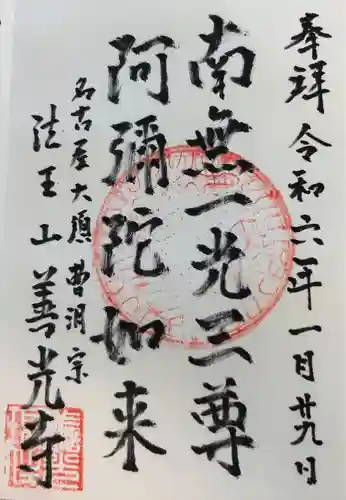 奉拝 令和六年一月廿九日
南無一光三尊
阿彌陀如来
名古屋大須 曹洞宗
法王山 善光寺